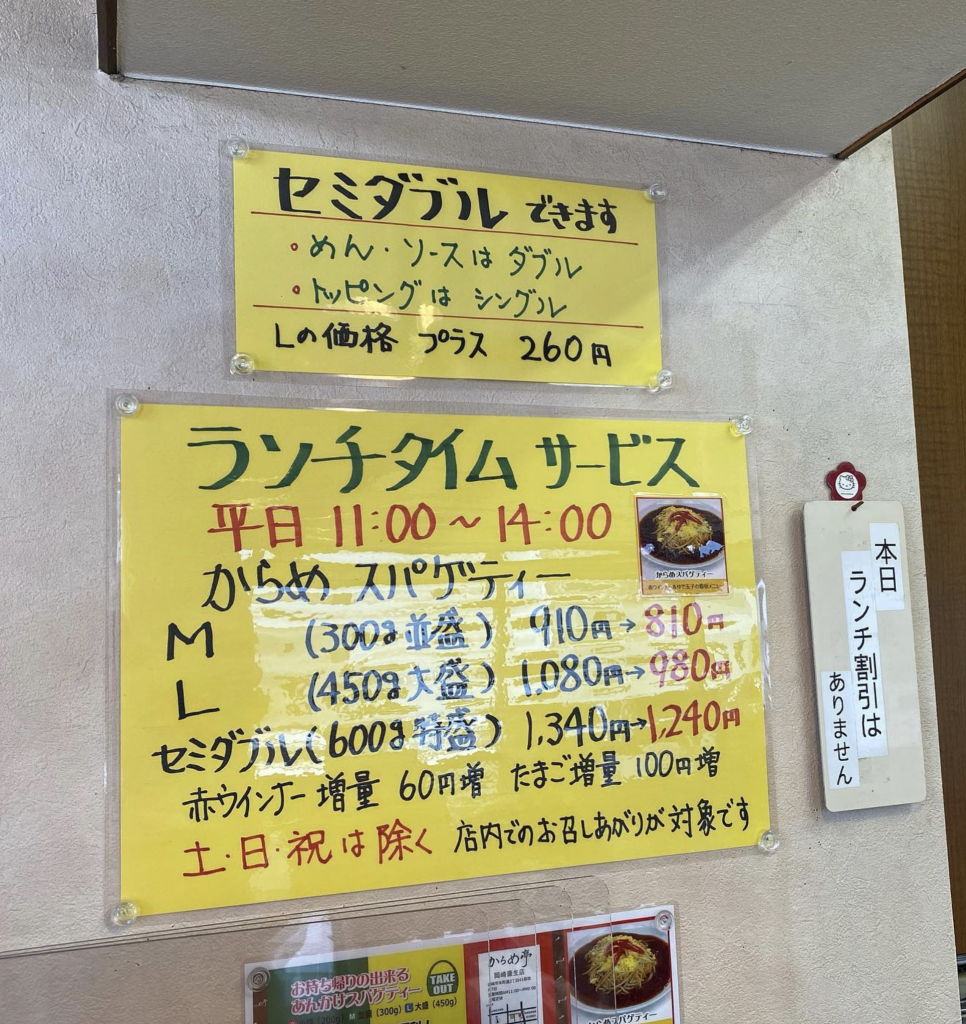 セミダブル できます
・めん・ソースは ダブル
・トッピングは シングル
Lの価格 プラス 260円
ランチタイム サービス
平日 11:00～14:00
からめ スパゲティー
からめスパゲティー
M (300g並盛) 910円→810円
L (450g大盛) 1,080円→980円
セミダブル(600g特盛) 1,340円→1,240円
赤ウインナー増量 60円増 たまご増量 100円増
土・日・祝は除く 店内でのお召しあがりが対象です
本日
ランチ割引は
ありません
お持ち帰りの出来る
あんかけスパゲティー
TAKE
OUT
(300g) L 大盛 (450g)
からめ亭
岡崎羽生店
からめスパゲティー